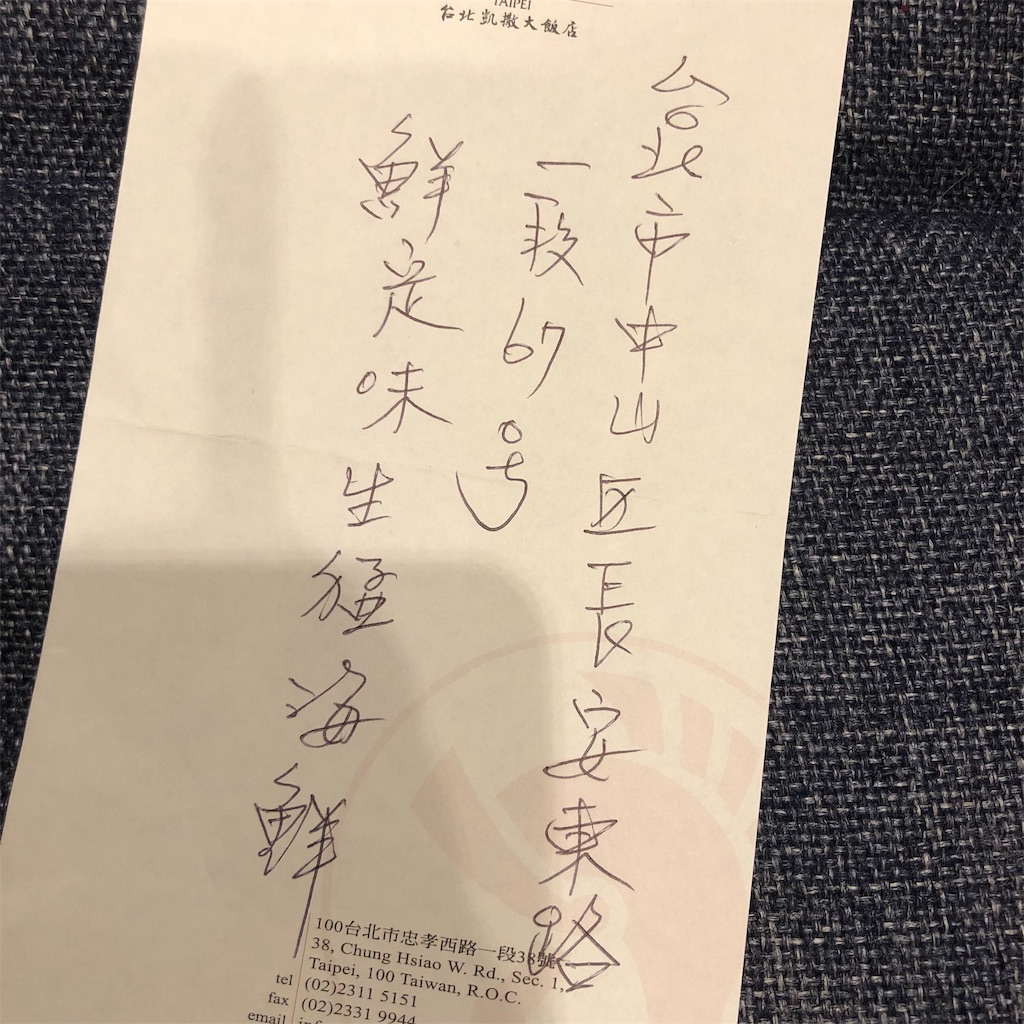 TAIPEI
台北凱撒大飯店
台北市中山区長安東路
一段67号
鮮定味生猛海鮮
100台北市忠孝西路一段38號
38, Chung Hsiao W. Rd., Sec. 1,
Taipei, 100 Taiwan, R.O.C.
tel (02)2311 5151
fax (02)2331 9944
email